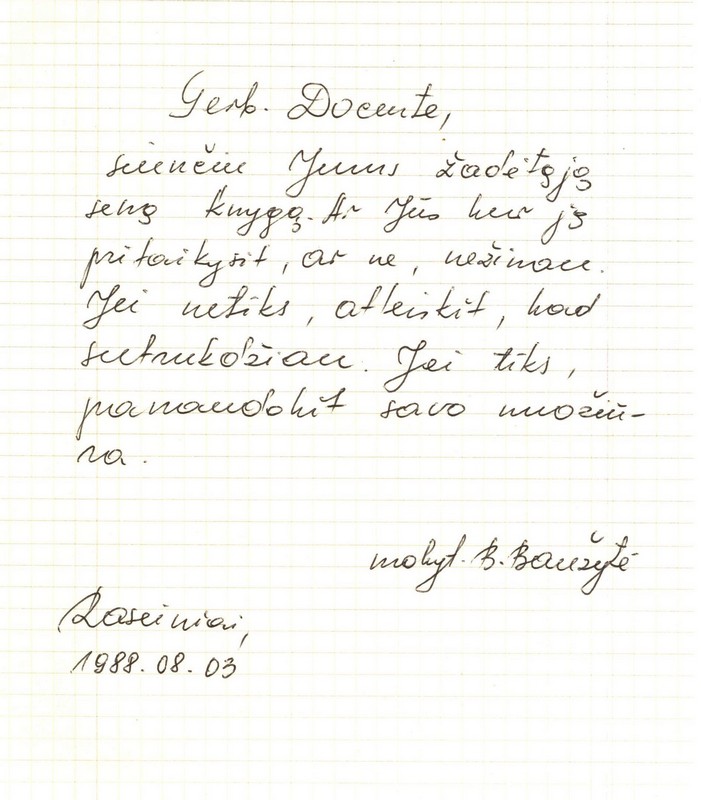 Gerb. Docente,
siunčiu Jums žadėtąją
seną knygą. Ar Jūs kur ją
pritaikysit, ar ne, nežinau.
Jei netiks, atleiskit, kad
sutrukdžiau. Jei tiks,
panaudokit savo nuožiū-
ra.
mokyt. B. Baužytė
Raseiniai,
1988.08.03